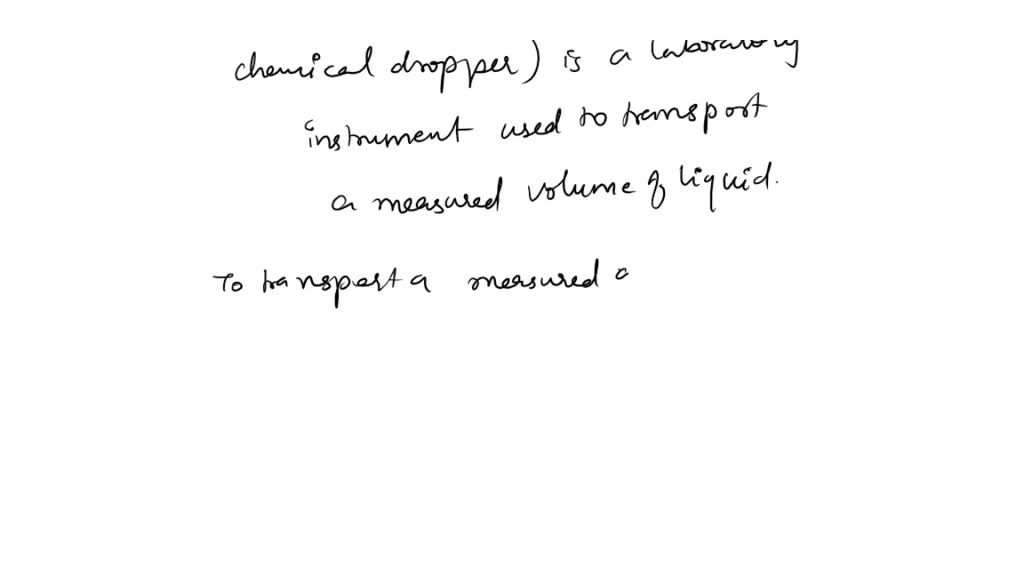 chemical dropper) is a laboratory
instrument used to transport
a measured volume of liquid.
To transport a measured a